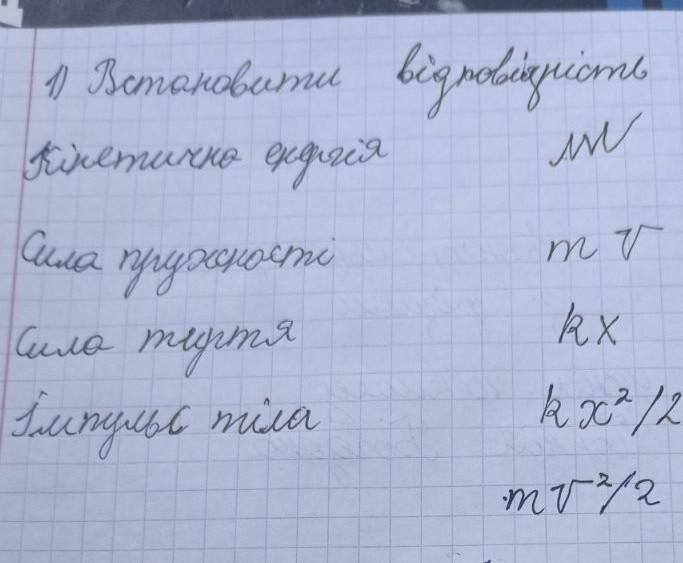 1) Встановити відповідність
Кінетична енергія μN
Сила пружності mv
Сила тертя kx
Імпульс тіла kx²/2
mv²/2